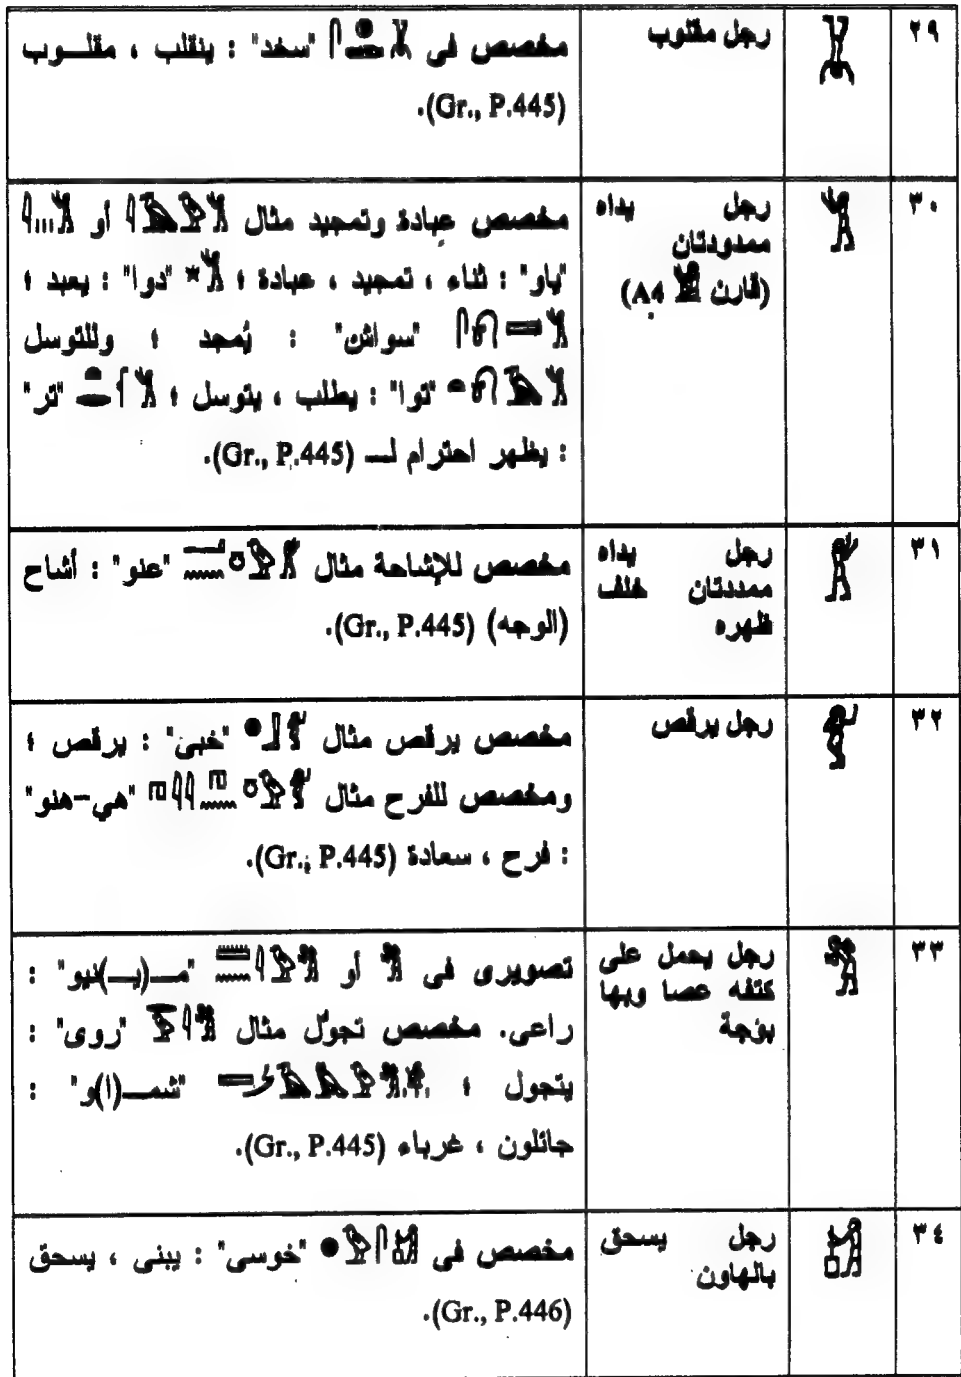 ٢٩
رجل مقلوب
مخصص في "سخد" : ينقلب ، مقلوب
(Gr., P.445).
٣٠
رجل يداه
ممدودتان
(قارن A4)
مخصص عبادة وتمجيد مثال أو
"ياو" : ثناء ، تمجيد ، عبادة ؛ "دوا" : يعبد ؛
"سواش" : يُمجد ؛ وللتوسل
"توا" : يطلب ، يتوسل ؛ "تر"
: يظهر احترام لـ (Gr., P.445).
٣١
رجل يداه
ممددتان خلف
ظهره
مخصص للإشاحة مثال "عنو" : أشاح
(الوجه) (Gr., P.445).
٣٢
رجل يرقص
مخصص يرقص مثال "خبى" : يرقص ؛
ومخصص للفرح مثال "هي-هنو"
: فرح ، سعادة (Gr., P.445).
٣٣
رجل يحمل على
كتفه عصا وبها
بؤجة
تصويرى فى أو "مـ(يـ)نيو" :
راعى. مخصص تجوّل مثال "روى" :
يتجول ؛ "شمـ(ا)و" :
جائلون ، غرباء (Gr., P.445).
٣٤
رجل يسحق
بالهاون
مخصص في "خوسى" : يبنى ، يسحق
(Gr., P.446).